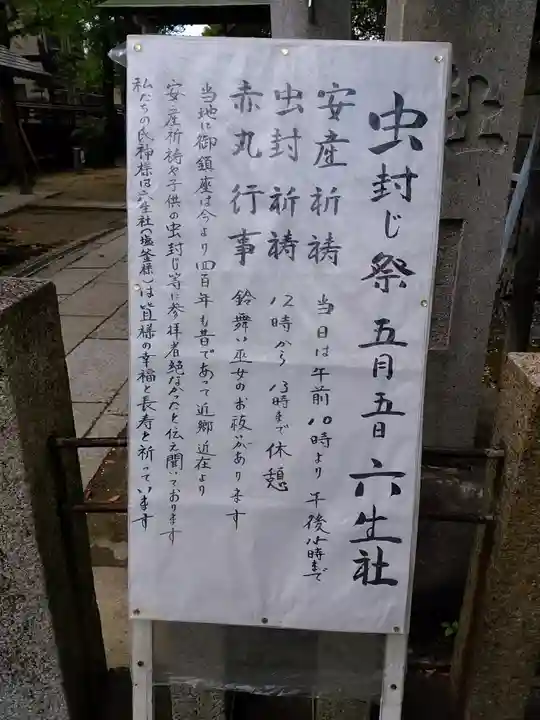 虫封じ祭 五月五日 六生社
安産祈祷 当日は午前10時より午後15時まで
虫封祈祷 12時から13時まで休憩
赤丸行事 鈴舞い巫女のお祓があります
当地に御鎮座は今より四百年も昔であって近郷近在より
安産祈祷や子供の虫封じ等に参拝者絶なかったと伝え聞いております
私たちの氏神様は六生社(塩釜様)は皆様の幸福と長寿を祈っています
社